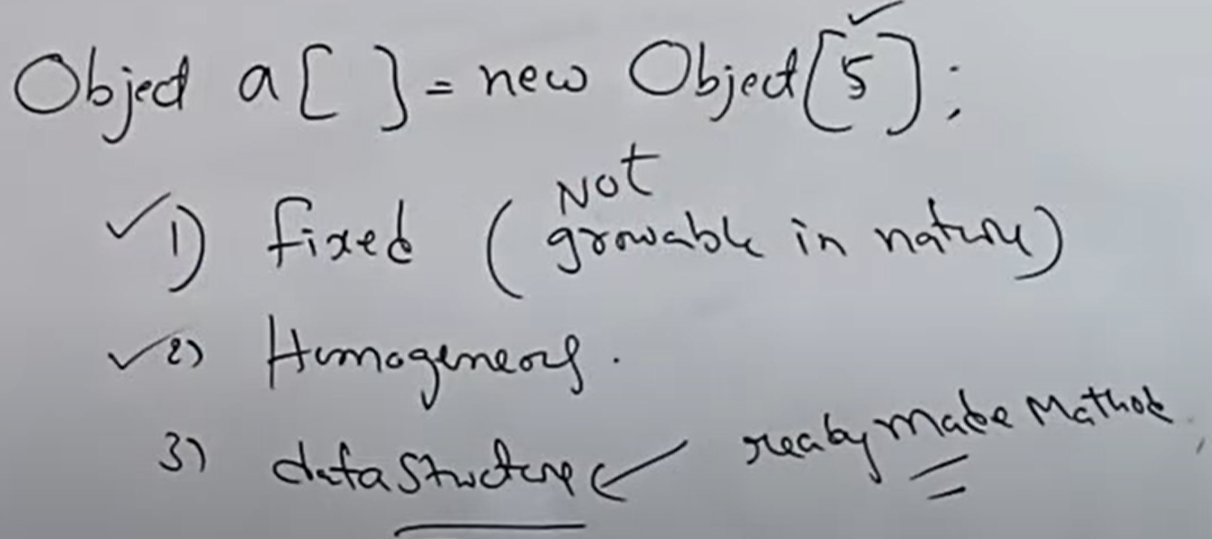 Object a [ ] = new Object[5];
1) fixed (Not growable in nature)
2) Homogeneous.
3) data Structure ready made Method